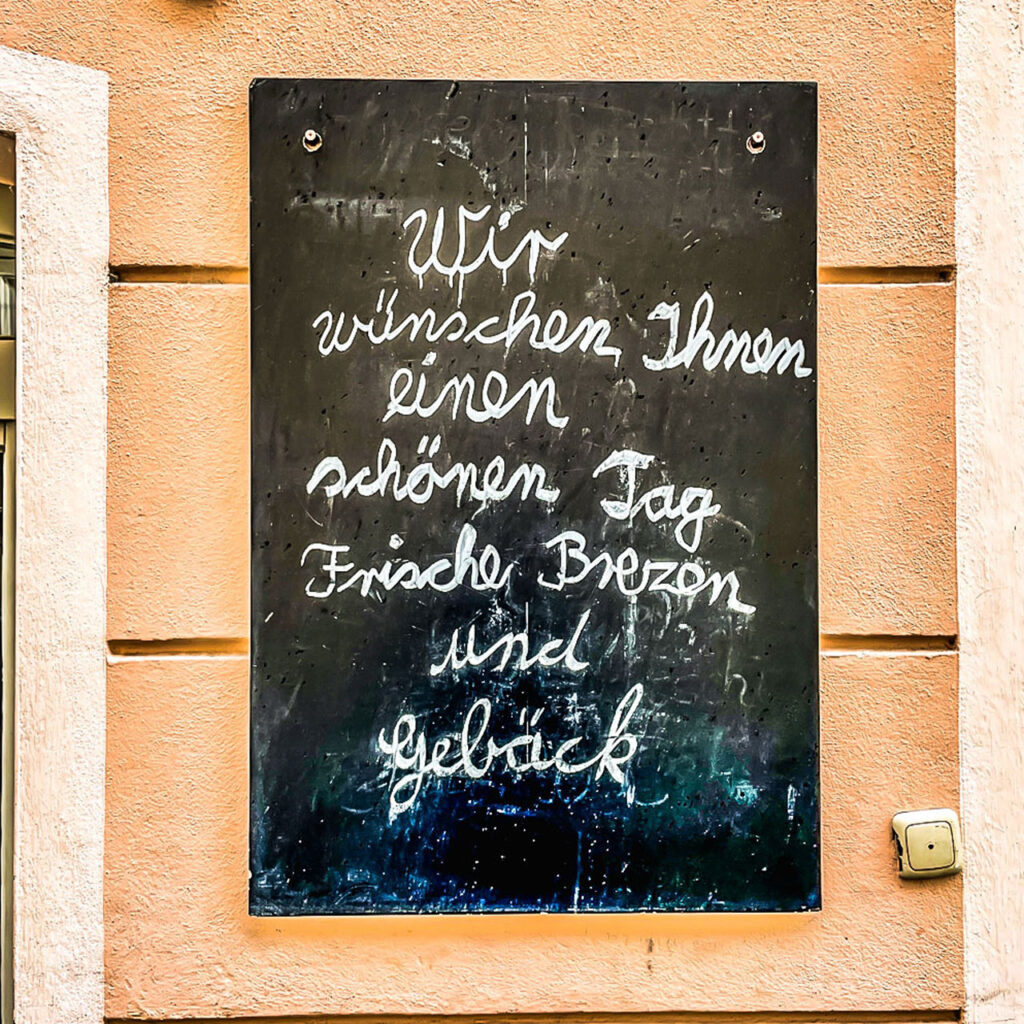 Wir
wünschen Ihnen
einen
schönen Tag
Frische Brezen
und
Gebäck